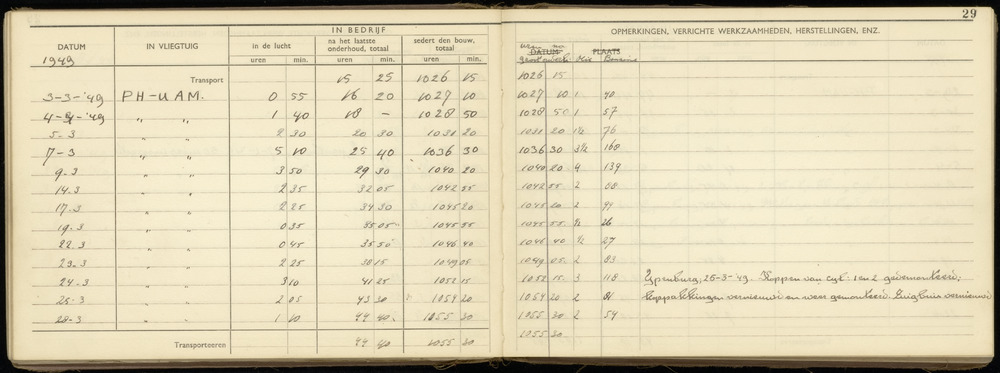 29
IN BEDRIJF
DATUM IN VLIEGTUIG in de lucht na het laatste onderhoud, totaal sedert den bouw, totaal OPMERKINGEN, VERRICHTE WERKZAAMHEDEN, HERSTELLINGEN, ENZ.
1949 uren min. uren min. uren min. DATUM PLAATS
Transport 15 25 1026 15 1026 15
3-3-'49 PH-UAM. 0 55 16 20 1027 10 1027 10 1 40
4-3-'49 " " 1 40 18 - 1028 50 1028 50 1 57
5-3 " " 2 30 20 30 1031 20 1031 20 1½ 76
7-3 " " 5 10 25 40 1036 30 1036 30 3½ 168
9-3 " " 3 50 29 30 1040 20 1040 20 4 139
14.3 " " 2 35 32 05 1042 55 1042 55 2 88
17.3 " " 2 25 34 30 1045 20 1045 20 2 94
19.3 " " 0 35 35 05 1045 55 1045 55 ½ 26
22.3 " " 0 45 35 50 1046 40 1046 40 ½ 27
23.3 " " 2 25 38 15 1049 05 1049 05 2 83
24.3 " " 3 10 41 25 1052 15 1052 15 3 118 Ypenburg, 25-3-'49. Koppen van cyl. 1 en 2 gedemonteerd,
25-3 " " 2 05 43 30 1054 20 1054 20 2 81 koppakkingen vernieuwd en weer gemonteerd. Zuigbuis vernieuwd
28-3 " " 1 10 44 40 1055 30 1055 30 2 54
Transporteeren 44 40 1055 30 1055 30